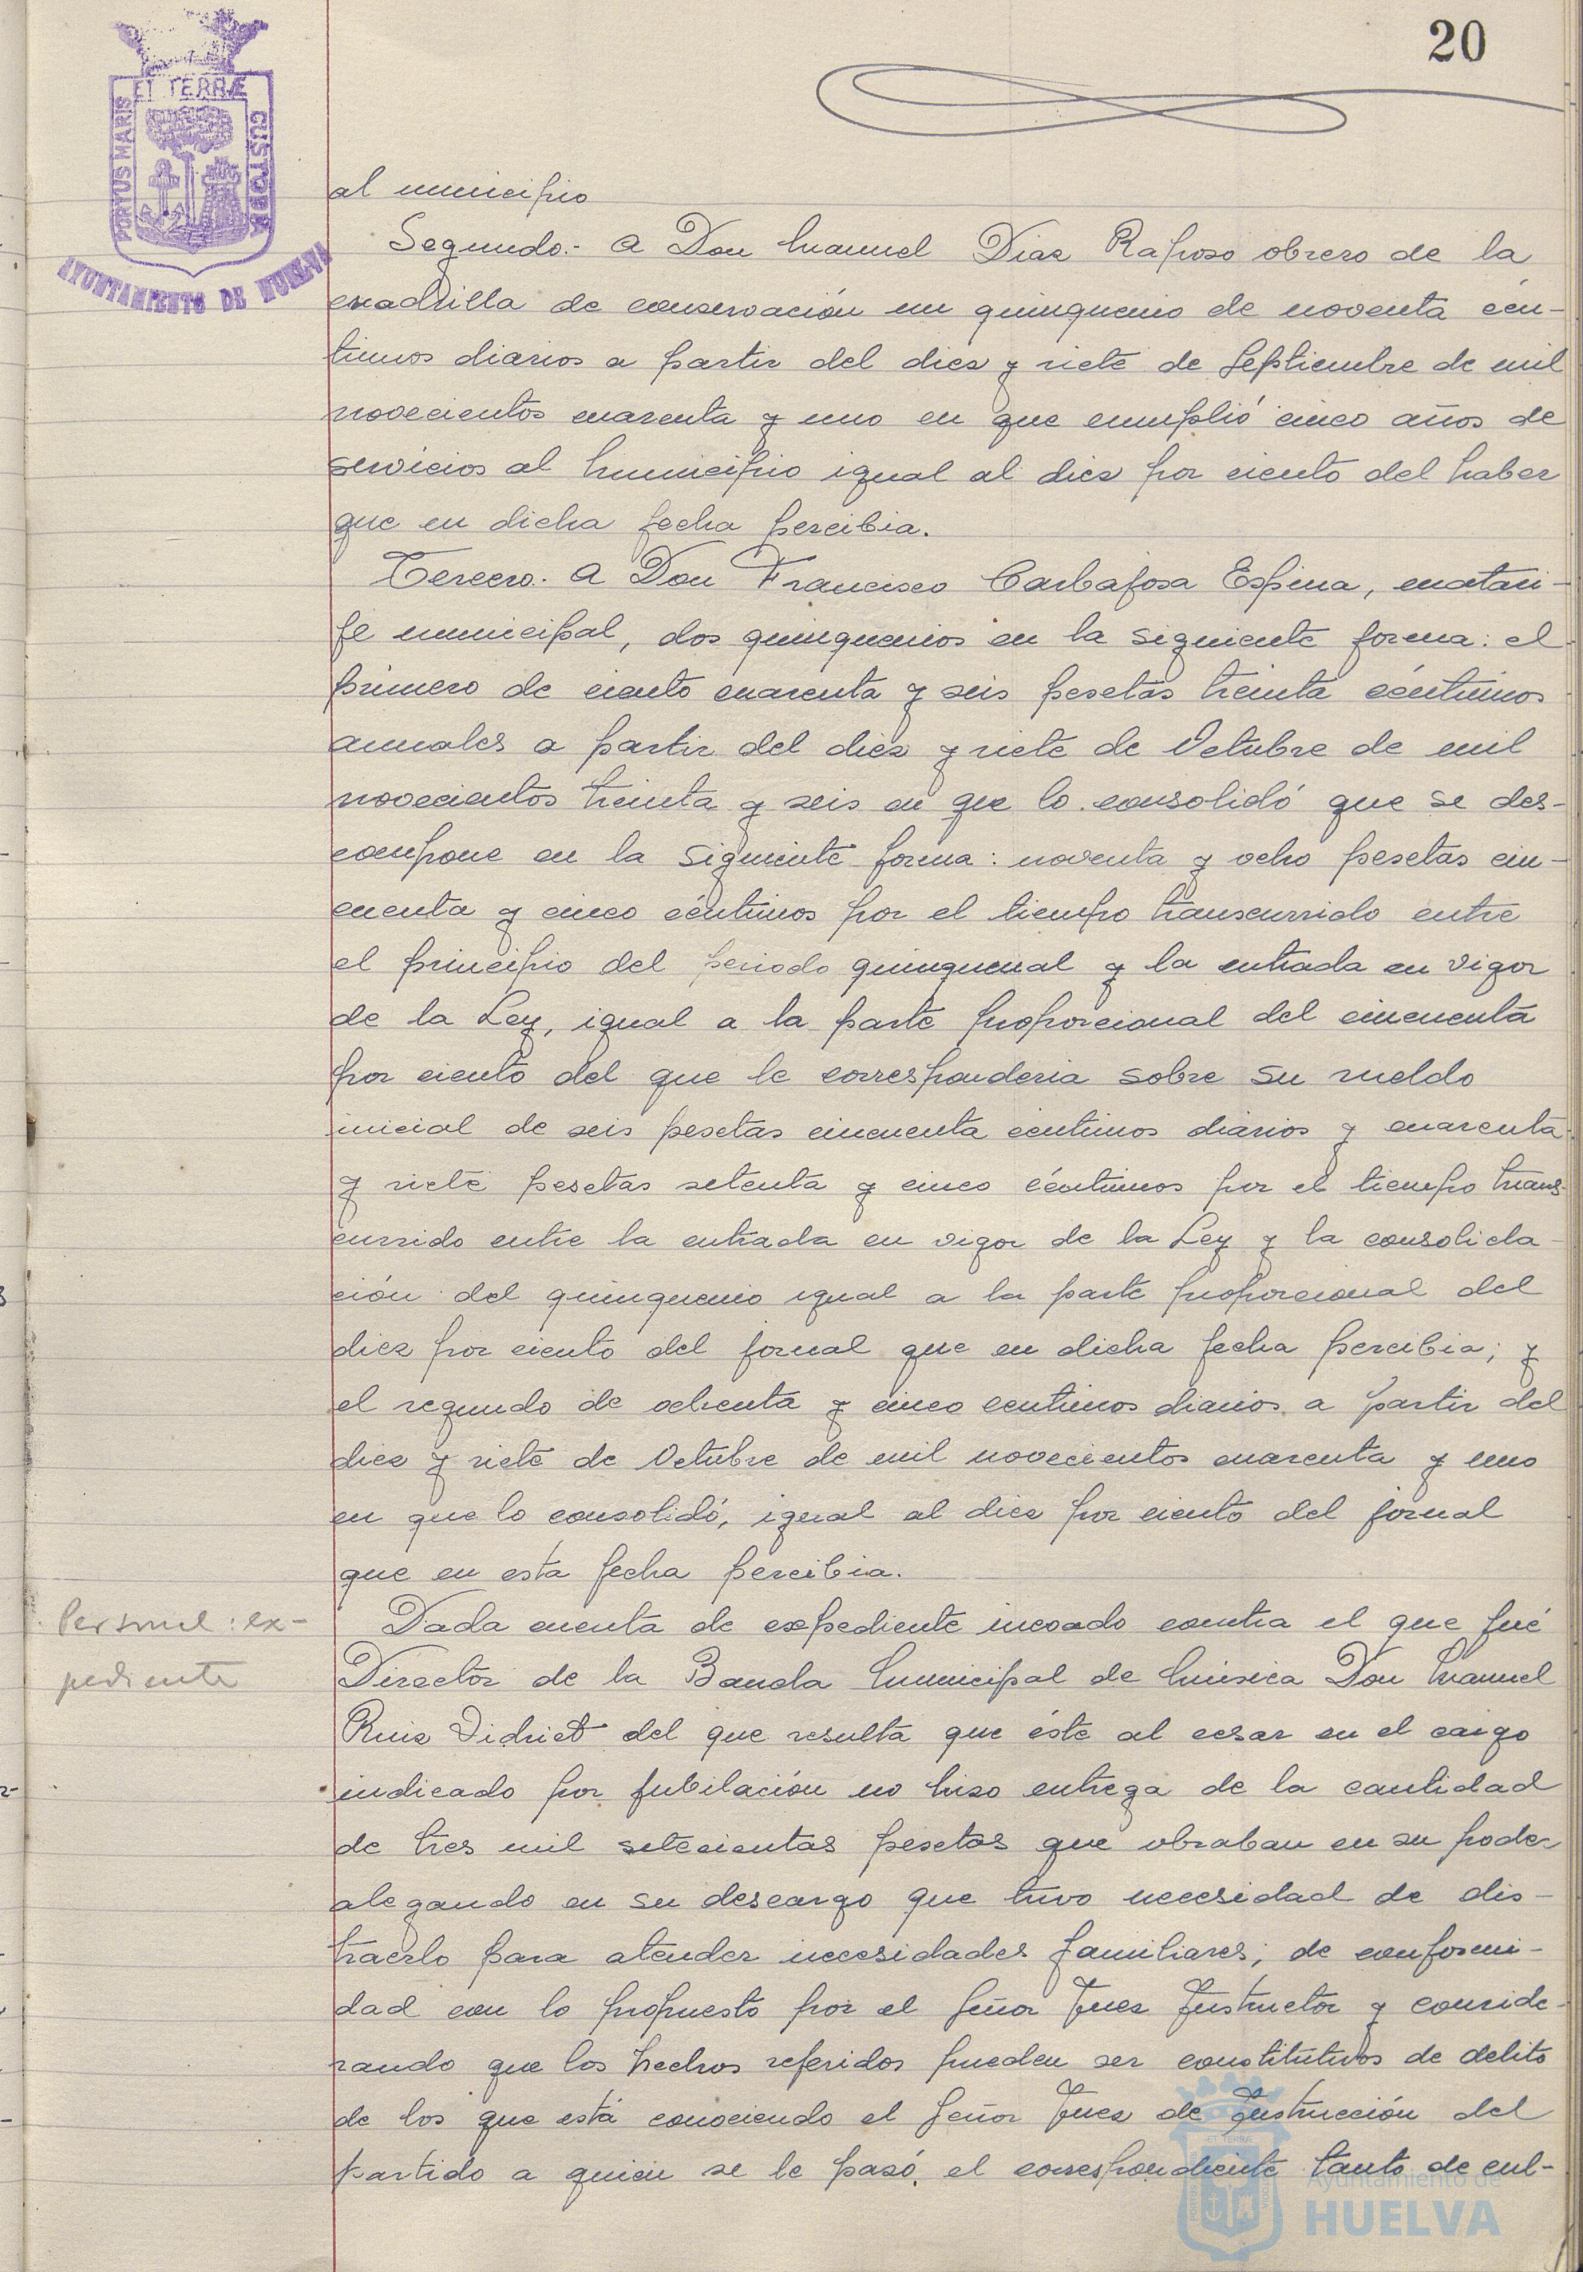 20
ET TERRÆ
PORTUS MARIS
CUSTODIA
AYUNTAMIENTO DE HUELVA
al municipio
Segundo.- A Don Manuel Diaz Raposo obrero de la
cuadrilla de conservación un quinquenio de noventa cén-
timos diarios a partir del diez y siete de Septiembre de mil
novecientos cuarenta y uno en que cumplió cinco años de
servicios al Municipio igual al diez por ciento del haber
que en dicha fecha percibia.
Tercero.- A Don Francisco Carbajosa Espina, matari-
fe municipal, dos quinquenios en la siguiente forma: el
primero de ciento cuarenta y seis pesetas treinta céntimos
anuales a partir del diez y siete de Octubre de mil
novecientos treinta y seis en que lo consolidó que se des-
compone en la siguiente forma: noventa y ocho pesetas cin-
cuenta y cinco céntimos por el tiempo transcurrido entre
el principio del periodo quinquenal y la entrada en vigor
de la Ley, igual a la parte proporcional del cincuenta
por ciento del que le corresponderia sobre su sueldo
inicial de seis pesetas cincuenta centimos diarios y cuarenta
y siete pesetas setenta y cinco céntimos por el tiempo trans-
currido entre la entrada en vigor de la Ley y la consolida-
ción del quinquenio igual a la parte proporcional del
diez por ciento del jornal que en dicha fecha percibia; y
el segundo de ochenta y cinco centimos diarios a partir del
diez y siete de Octubre de mil novecientos cuarenta y uno
en que lo consolidó, igual al diez por ciento del jornal
que en esta fecha percibia.
Personal: ex-
pediente
Dada cuenta de expediente incoado contra el que fué
Director de la Banda Municipal de Música Don Manuel
Ruiz Vidriet del que resulta que éste al cesar en el cargo
indicado por jubilación no hizo entrega de la cantidad
de tres mil setecientas pesetas que obraban en su poder
alegando en su descargo que tuvo necesidad de dis-
traerlo para atender necesidades familiares; de conformi-
dad con lo propuesto por el Señor Juez Instructor y conside-
rando que los hechos referidos pueden ser constitutivos de delito
de los que está conociendo el Señor Juez de Instrucción del
partido a quien se le pasó el correspondiente tanto de cul-
Ayuntamiento de
HUELVA